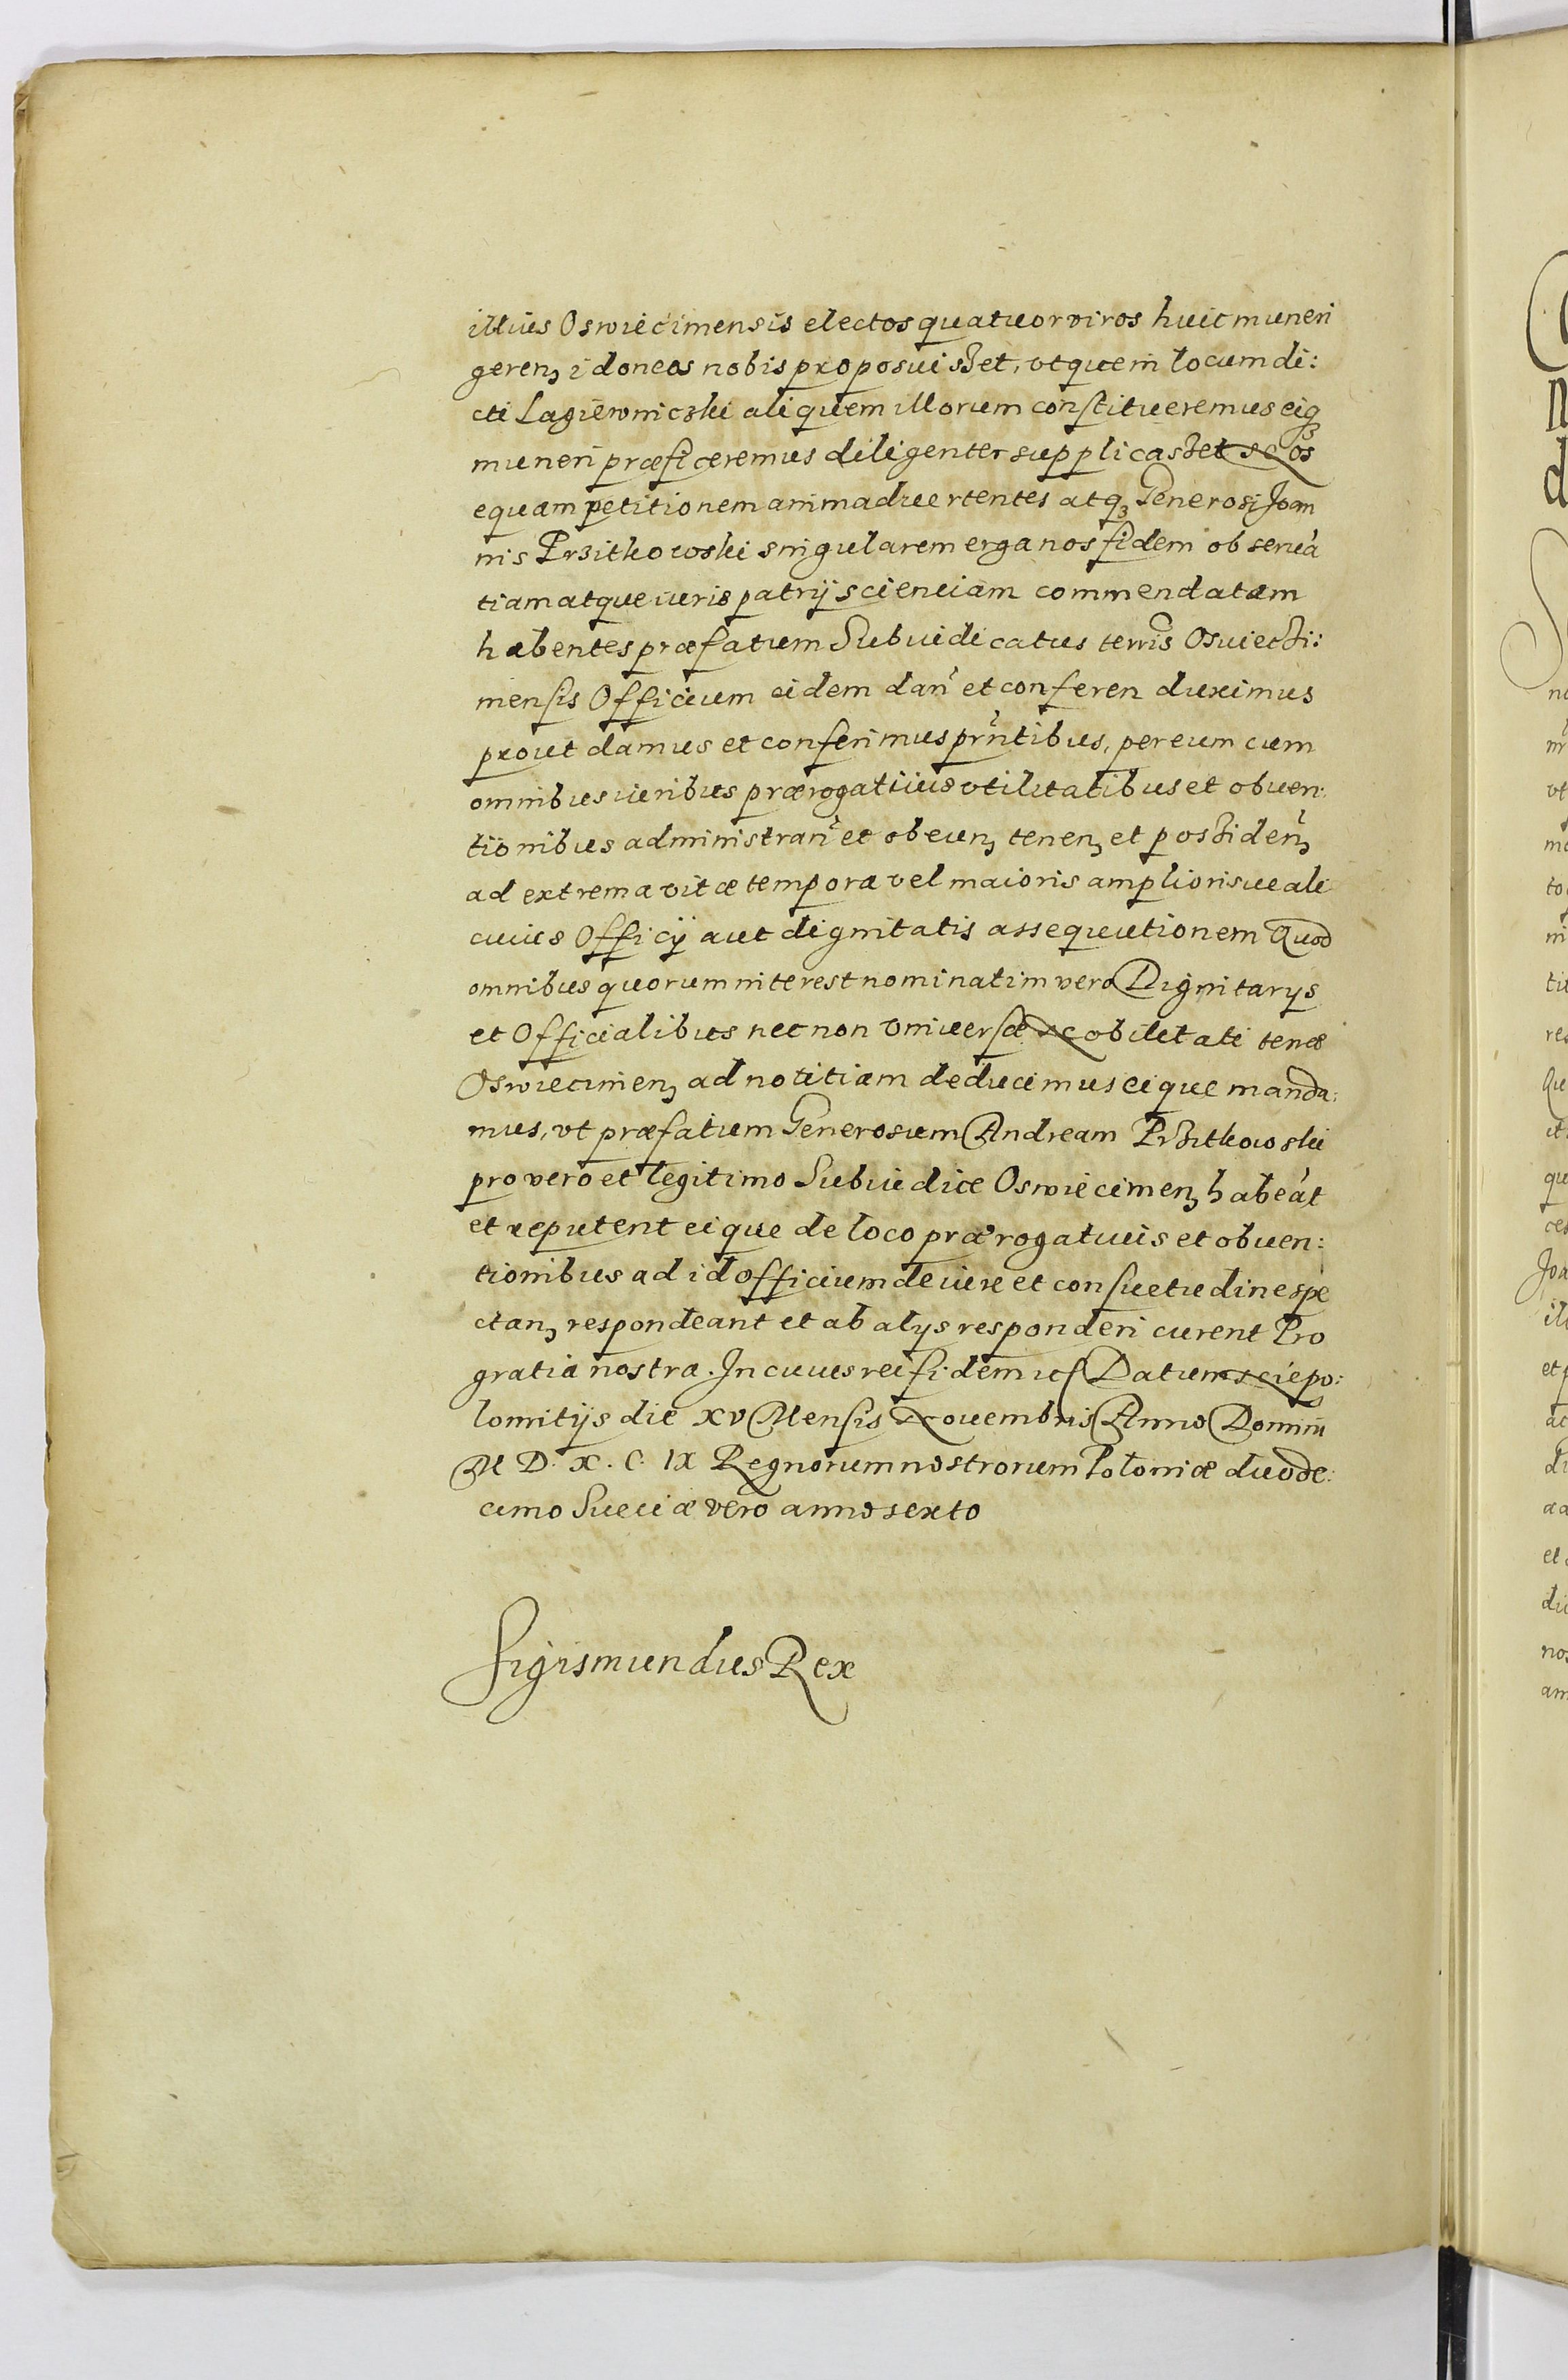 illius Oswiecimensis electos quatuor viros huic muneri
gerenꝫ idoneos nobis proposuisset, vt quem locum di:
cti Lagiewniczki aliquem illorum constitueremus eiqꝫ
muneri præficeremus diligenter supplicasset Nos
equam petitionem animaduertentes atqꝫ Generosi Joan
nis Przitkowski singularem erga nos fidem obseruā
tiam atque iuris patrij scienciam commendatam
habentes præfatum Subiudicatus terris Osuiecti:
mensis Officium eidem dañ et conferen duximus
prout damus et conferimus prñtibus, per eum cum
omnibus iuribus prærogatiuis vtilitatibus et obuen:
tionibus administrañ et obeunꝫ tenenꝫ et possideñꝫ
ad extrema vitæ tempora vel maioris amplioris ue ali
cuius Officij aut dignitatis assequutionem Quod
omnibus quorum interest nominatim vero Dignitarijs
et Officialibus nec non Vniuersæ Nobilitati terræ
Oswiecimenꝫ ad notitiam deducimus eique manda:
mus, vt præfatum Generosum Andream Przitkowski
pro vero et legitimo Subiudice Oswiecimenꝫ habeāt
et reputent eique de loco prærogatiuis et obuen:
tionibus ad id officium de iure et consuetudine spe
ctanꝫ respondeant et ab alijs responderi curent Pro
gratia nostra. In cuius rei fidem ꝛcſ Datum Niepo:
lomitijs die XV Mensis Nouembris Anno Domini
M D. X. C. IX Regnorum nostrorum Poloniæ duode:
cimo Sueciæ vero anno sexto
Sigismundus Rex